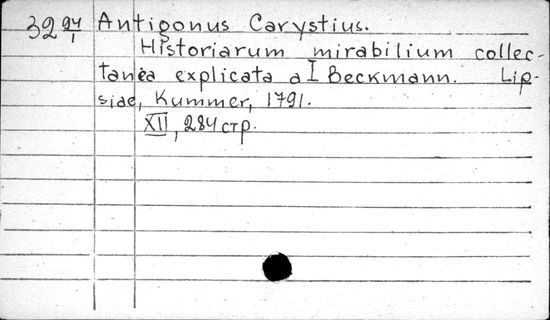 32 24/1 Antigonus Carystius.
Historiarum mirabilium collec-
tanea explicata a I Beckmann. Lip-
siae, Kummer, 1791.
XII, 284 стр.